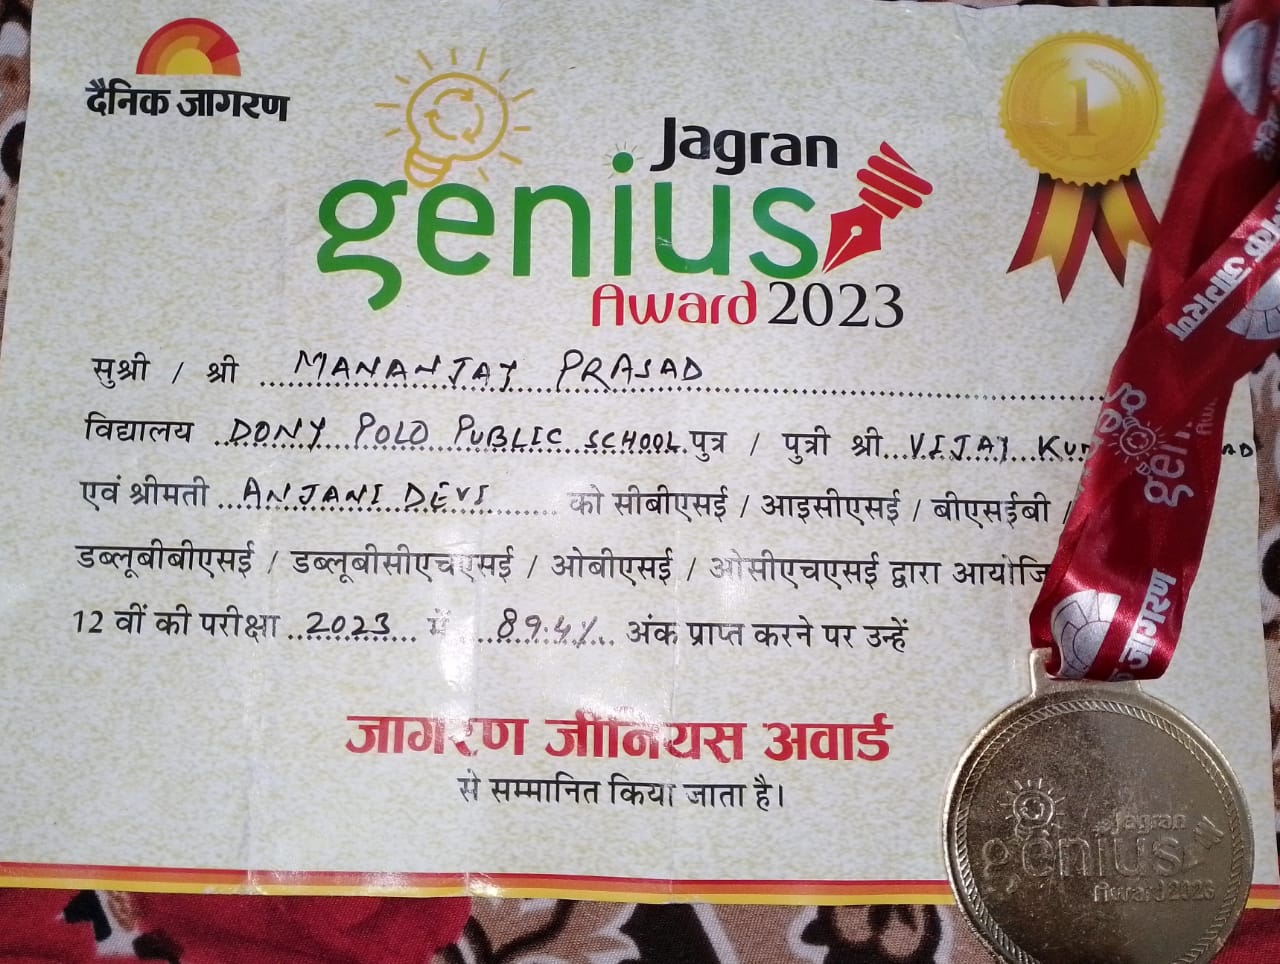 दैनिक जागरण
1
Jagran
genius
Award 2023
सुश्री / श्री MANANJAY PRASAD
विद्यालय DONY POLO PUBLIC SCHOOL पुत्र / पुत्री श्री VIJAY
एवं श्रीमती ANJANI DEVI को सीबीएसई / आइसीएसई / बीएसईबी /
डब्लूबीबीएसई / डब्लूबीसीएचएसई / ओबीएसई / ओसीएचएसई द्वारा
12 वीं की परीक्षा 2023 में 89.4% अंक प्राप्त करने पर उन्हें
जागरण जीनियस अवार्ड
से सम्मानित किया जाता है।
जागरण
genius
जागरण
Jagran
genius
Award 2023